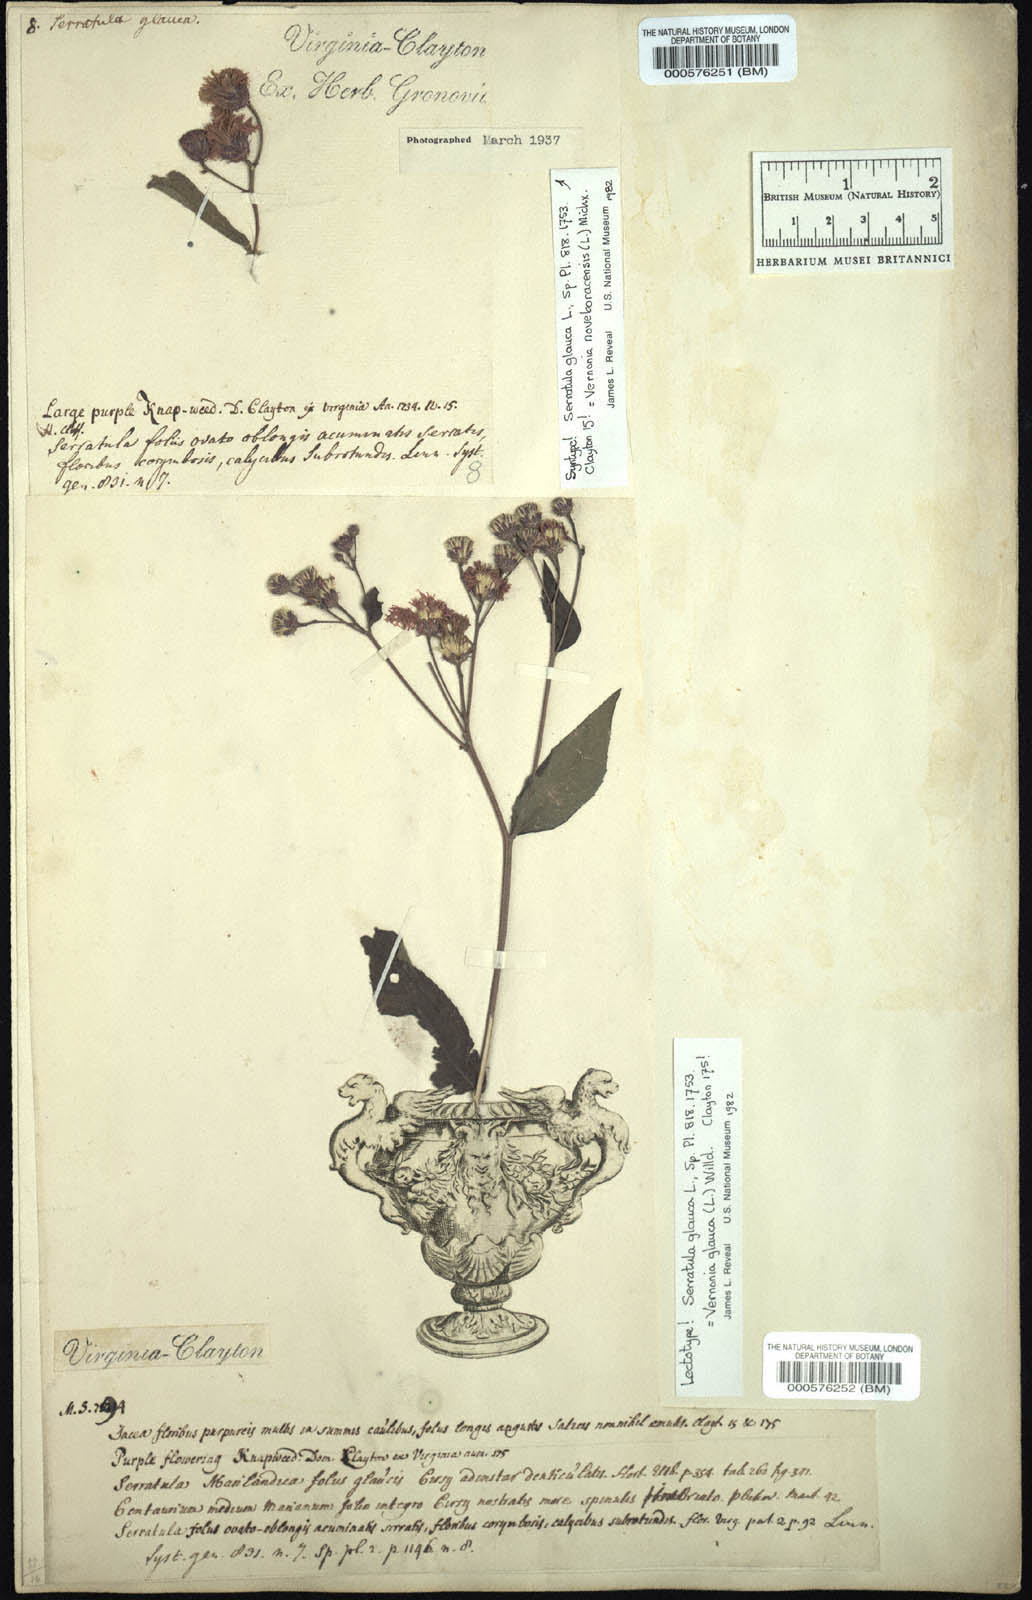 8. Serratula glauca.
Virginia-Clayton
Ex. Herb. Gronovii
THE NATURAL HISTORY MUSEUM, LONDON
DEPARTMENT OF BOTANY
000576251 (BM)
Photographed March 1937
1 2
BRITISH MUSEUM (NATURAL HISTORY)
1 2 3 4 5
HERBARIUM MUSEI BRITANNICI
Syntype! Serratula glauca L., Sp. Pl. 818. 1753.
Clayton 15! = Vernonia noveboracensis (L.) Michx.
James L. Reveal U.S. National Museum 1982
Large purple Knap-weed. D. Clayton ex Virginia An. 1734. N. 15.
H. Cliff.
Serratula foliis ovato oblongis acuminatis serratis,
floribus corymbosis, calycibus Subrotundis. Linn. Syst.
gen. 831. n. 7.
8
Lectotype! Serratula glauca L., Sp. Pl. 818. 1753.
= Vernonia glauca (L.) Willd. Clayton 175!
James L. Reveal U.S. National Museum 1982
Virginia-Clayton
THE NATURAL HISTORY MUSEUM, LONDON
DEPARTMENT OF BOTANY
000576252 (BM)
M.S.
Jacea floribus purpureis multis in summis caulibus, foliis longis angustis Salicis nonnihil æmulis. Clayt. 15 & 175
Purple flowering Knapweed. Dom. Clayton ex Virginia num. 175
Serratula Marilandica foliis glaucis Cirsy ad instar denticulatis. Hort. Elth. p. 354. tab. 262 fig. 341.
Centaurium medium Marianum folio integro Cirsy nostratis more spinulis Pluken. Mant. 42
Serratula foliis ovato-oblongis acuminatis serratis, floribus corymbosis, calycibus subrotundis. Flor. Virg. pat. 2 p. 92 Linn.
Syst. gen. 831. n. 7. Sp. pl. 2. p. 1146 n. 8.